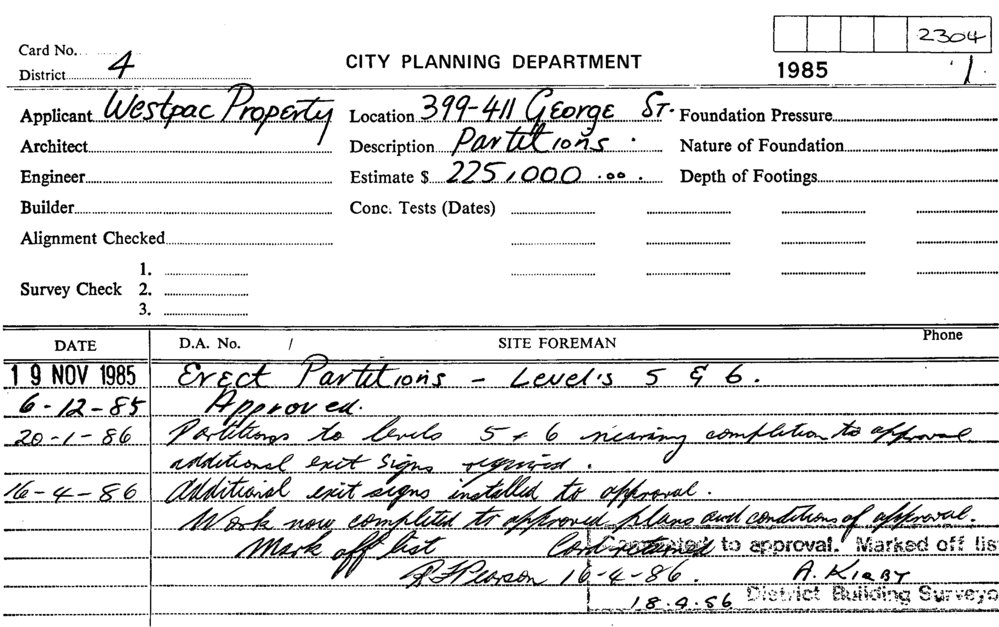 2304
Card No.
District 4
CITY PLANNING DEPARTMENT
1985 1.
Applicant Westpac Property
Location 399-411 George St.
Foundation Pressure
Architect
Description Partitions.
Nature of Foundation
Engineer
Estimate $ 225,000.00.
Depth of Footings
Builder
Conc. Tests (Dates)
Alignment Checked
Survey Check
1.
2.
3.
DATE D.A. No. / SITE FOREMAN Phone
19 NOV 1985 Erect Partitions - Level's 5 & 6.
6-12-85 Approved.
20-1-86 Partitions to levels 5 & 6 nearing completion to approval
additional exit signs required.
16-4-86 Additional exit signs installed to approval.
Work now completed to approved plans and conditions of approval.
Mark off list Card returned
to approval. Marked off lis
R F Pearson 16-4-86. A. KIRBY
18.4.86 District Building Surveyo